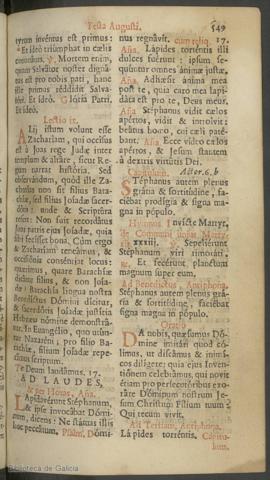 Festa Augusti.
549
tyrum inventus est primus:
Et ideò triumphat in cælis
coronatus. ℣. Mortem enim,
quam Salvator noster digna-
tus est pro nobis pati, hanc
ille primus reddidit Salva-
tori. Et ideò. Gloria Patri.
Et ideò.
Lectio ix.
Alij istum volunt esse
Zachariam, qui occisus
est à Joas rege Judæ inter
templum & altare, sicut Re-
gum narrat historia. Sed
observandum, quòd ille Za-
charias non sit filius Bara-
chiæ, sed filius Jojadæ sacer-
dótis: unde & Scriptura
refert: Non fuit recordatus
Joas patris ejus Jojadæ, quia
sibi fecisset bona. Cùm ergo
& Zachariam teneamus, &
occisionis consentiat locus:
quærimus, quare Barachiæ
dicatur filius, & non Joja-
dæ: Barachia lingua nostra
Benedictus Dómini dícitur,
& sacerdótis Jojadæ justítia
Hebræo nómine demonstrá-
tur. In Evangélio, quo utún-
tur Nazaréni, pro filio Ba-
rachíæ, filium Jojadæ repe-
rímus scriptum.
Te Deum laudámus. 17.
AD LAUDES,
& per Horas, Aña.
Lapidavérunt Stéphanum,
& ipse invocábat Dómi-
num, dicens: Ne státuas illis
hoc peccátum. Psalm. Dómi-
nus regnávit. cum reliq. 17.
Aña. Lápides torréntis illi
dulces fuérunt: ipsum se-
quúntur omnes ánimæ justæ.
Aña. Adhæsit ánima mea
post te, quia caro mea lapi-
dáta est pro te, Deus meus.
Aña Stéphanus vidit cælos
apértos, vidit & introívit:
beátus homo, cui cæli paté-
bant. Aña Ecce vídeo cælos
apértos, & Jesum stantem
à dextris virtútis Dei.
Capitulum. Actor. 6. b
Stéphanus autem plenus
grátia & fortitúdine, fa-
ciébat prodígia & signa ma-
gna in pópulo.
Hymnus. Invicte Martyr.
de Communi unius Martyr.
xxxiij. ℣. Sepeliérunt
Stéphanum viri timoráti.
℟. Et fecérunt planctum
magnum super eum.
Ad Benedictus. Antiphona.
Stéphanus autem plenus grá-
tia & fortitúdine, faciébat
signa magna in pópulo.
Oratio
Da nobis, quæsumus Dó-
mine imitári quod có-
limus, ut discámus & inimí-
cos dilígere; quia ejus Inven-
tiónem celebrámus, qui novit
étiam pro persecutóribus exo-
ráre Dóminum nostrum Je-
sum Christum fílium tuum:
Qui tecum vivit.
Ad Tertiam, Antiphona.
Lápides torréntis. Capítu-
lum.
Biblioteca de Galicia